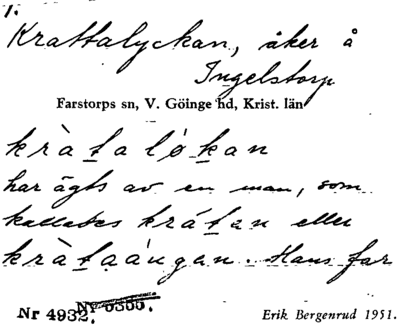 1.
Krattalyckan, åker å
Ingelstorp
Farstorps sn, V. Göinge hd, Krist. län
kràtaløkan
har ägts av en man, som
kallades krátan eller
kràtaángan. Hans far
Nr 4932. Nr 6355.
Erik Bergenrud 1951.